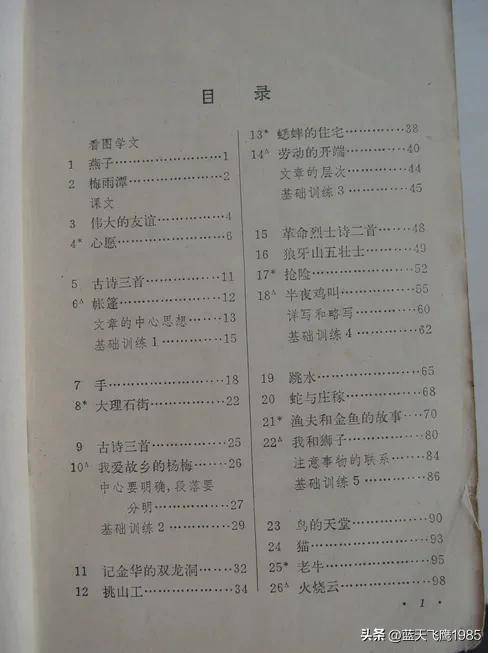 目 录
看图学文
1 燕子…………………1
2 梅雨潭………………2
课文
3 伟大的友谊…………4
4* 心愿…………………6
5 古诗三首……………11
6△ 帐篷…………………12
文章的中心思想……13
基础训练1……………15
7 手……………………18
8* 大理石街……………22
9 古诗三首……………25
10△ 我爱故乡的杨梅……26
中心要明确,段落要
分明…………………27
基础训练2……………29
11 记金华的双龙洞……32
12 挑山工………………34
13* 蟋蟀的住宅…………38
14△ 劳动的开端…………40
文章的层次…………44
基础训练3……………45
15 革命烈士诗二首……48
16 狼牙山五壮士………49
17* 抢险…………………52
18△ 半夜鸡叫……………55
详写和略写…………60
基础训练4……………62
19 跳水…………………65
20 蛇与庄稼……………68
21* 渔夫和金鱼的故事…70
22△ 我和狮子……………80
注意事物的联系……84
基础训练5……………86
23 鸟的天堂……………90
24 猫……………………93
25* 老牛…………………95
26△ 火烧云………………98
· 1 ·
头条 @蓝天飞鹰1985